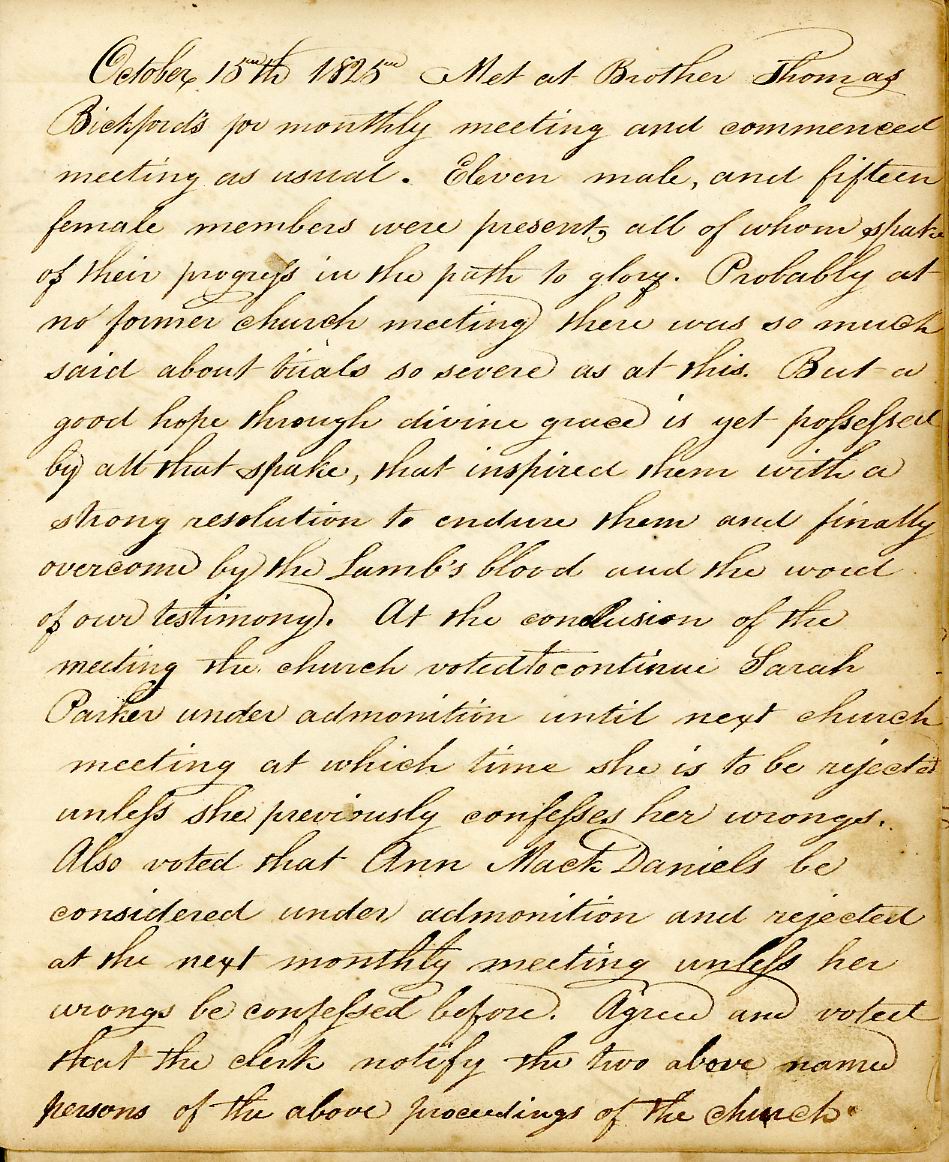 October 15th 1825 Met at Brother Thomas
Bickford's for monthly meeting and commenced
meeting as usual. Eleven male, and fifteen
female members were present, all of whom spake
of their progreſs in the path to glory. Probably at
no former church meeting there was so much
said about trials so severe as at this. But a
good hope through divine grace is yet poſseſsed
by all that spake, that inspired them with a
strong resolution to endure them and finally
overcome by the Lamb's blood and the word
of our testimony. At the conclusion of the
meeting the church voted to continue Sarah
Parker under admonition until next church
meeting at which time she is to be rejected
unleſs she previously confeſses her wrongs.
Also voted that Ann Mack Daniels be
considered under admonition and rejected
at the next monthly meeting unleſs her
wrongs be confeſsed before. Agreed and voted
that the clerk notify the two above named
persons of the above proceedings of the church.